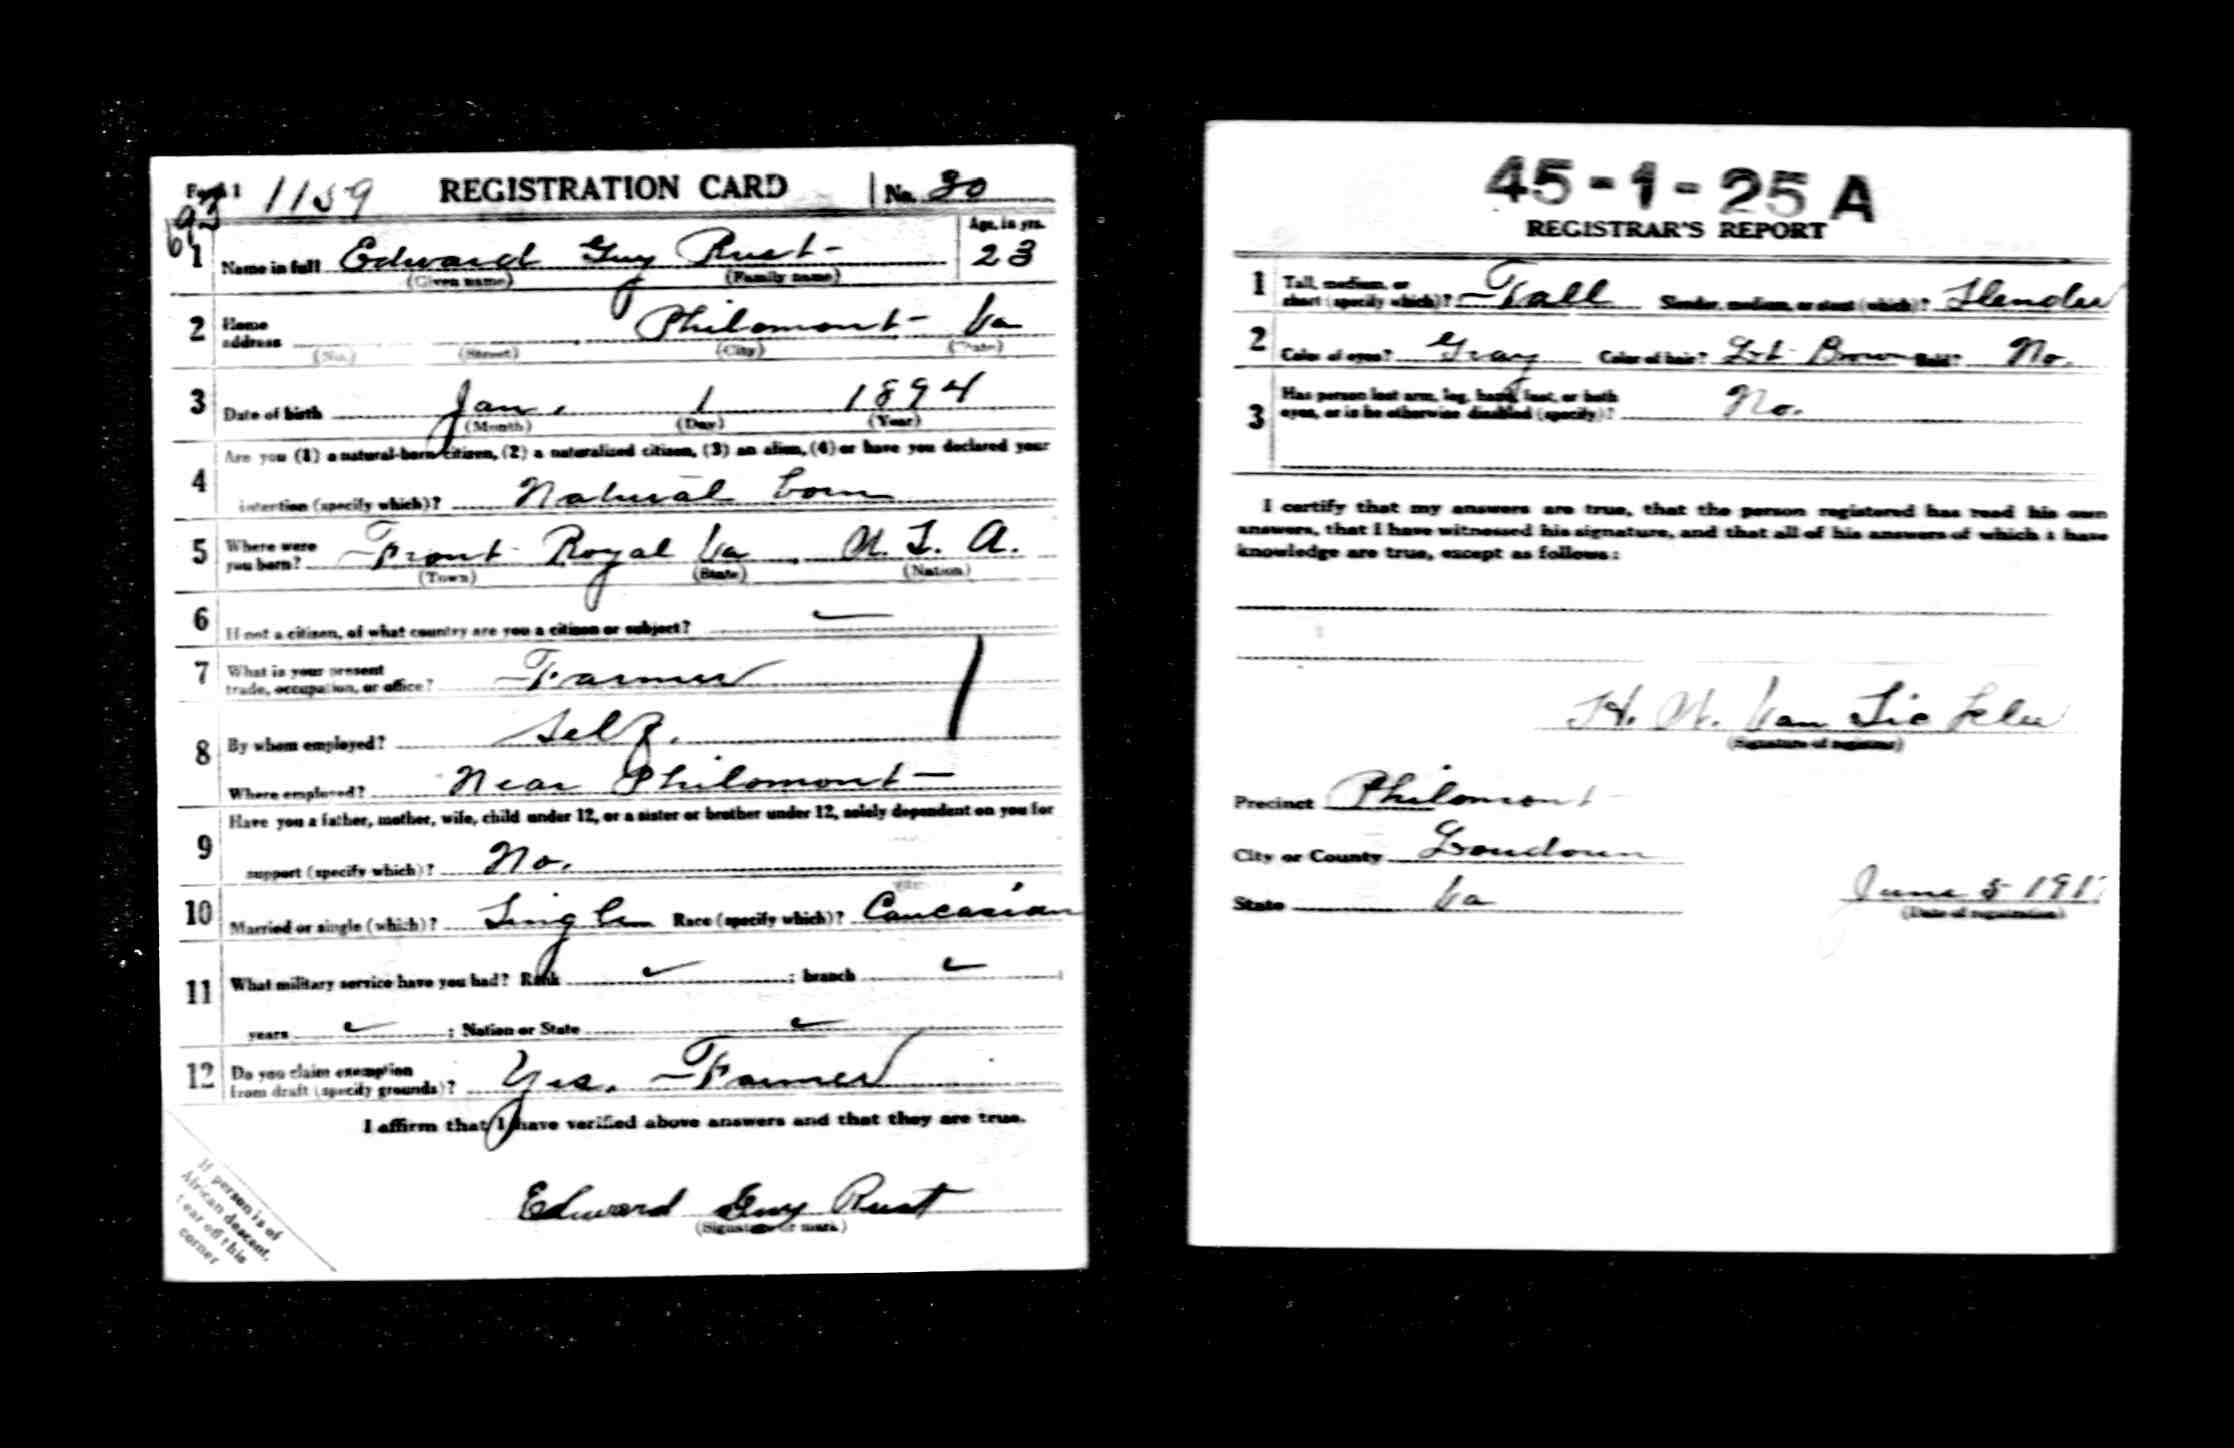 Form 1 1159 REGISTRATION CARD No. 30
693
1 Name in full Edward Guy Rust Age, in yrs. 23
(Given name) (Family name)
2 Home address Philomont Va
(No.) (Street) (City) (State)
3 Date of birth Jan. 1 1894
(Month) (Day) (Year)
4 Are you (1) a natural-born citizen, (2) a naturalized citizen, (3) an alien, (4) or have you declared your
intention (specify which)? Natural born
5 Where were you born? Front Royal Va U. S. A.
(Town) (State) (Nation)
6 If not a citizen, of what country are you a citizen or subject?
7 What is your present trade, occupation, or office? Farmer
8 By whom employed? Self.
Where employed? Near Philomont
9 Have you a father, mother, wife, child under 12, or a sister or brother under 12, solely dependent on you for
support (specify which)? No.
10 Married or single (which)? Single Race (specify which)? Caucasian
11 What military service have you had? Rank ; branch
years ; Nation or State
12 Do you claim exemption from draft (specify grounds)? Yes. Farmer
I affirm that I have verified above answers and that they are true.
Edward Guy Rust
(Signature or mark)
If person is of
African descent,
tear off this
corner
45-1-25 A
REGISTRAR'S REPORT
1 Tall, medium, or short (specify which)? Tall Slender, medium, or stout (which)? Slender
2 Color of eyes? Gray Color of hair? Lt Brown Bald? No.
3 Has person lost arm, leg, hand, foot, or both
eyes, or is he otherwise disabled (specify)? No.
I certify that my answers are true, that the person registered has read his own
answers, that I have witnessed his signature, and that all of his answers of which I have
knowledge are true, except as follows:
H. W. Van Sickler
(Signature of registrar)
Precinct Philomont
City or County Loudoun
State Va June 5 191
(Date of registration)